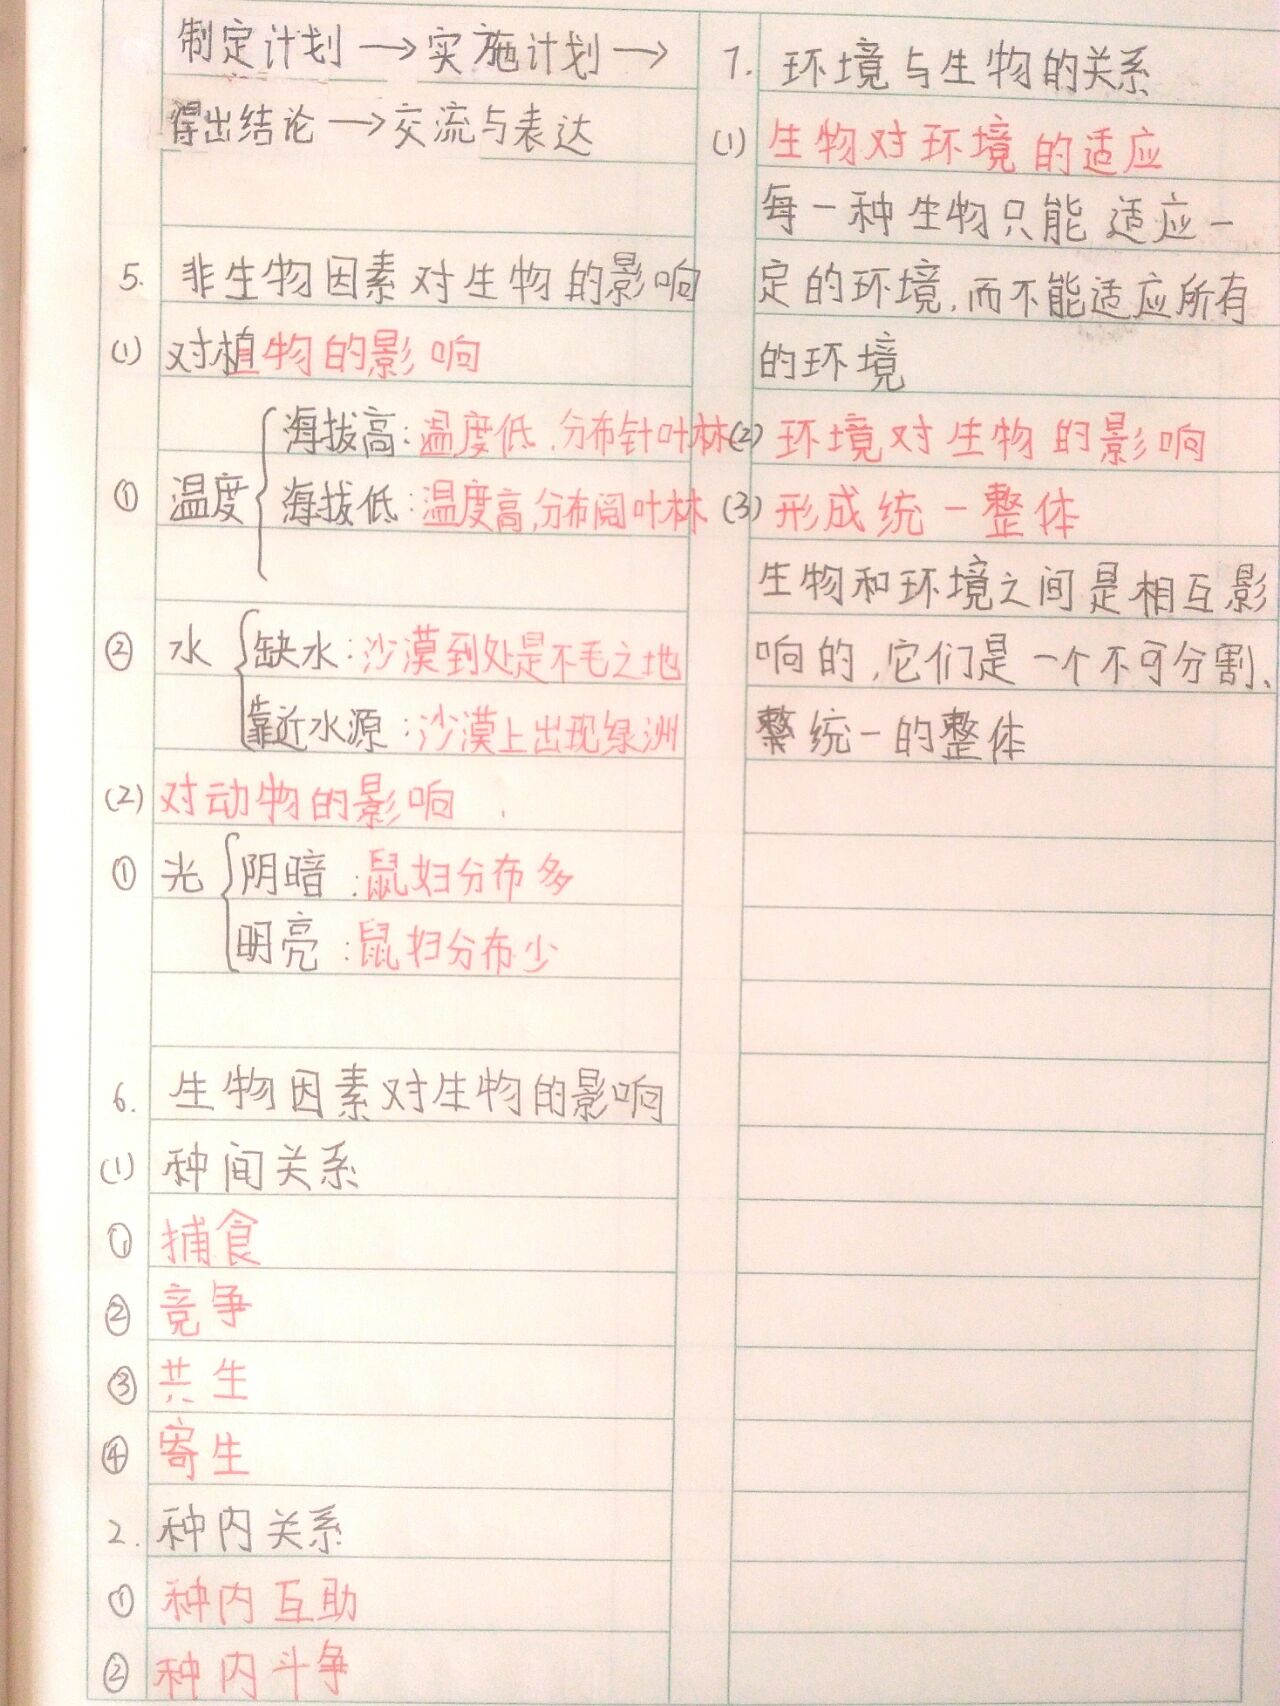 制定计划→实施计划→
得出结论→交流与表达
5. 非生物因素对生物的影响
(1) 对植物的影响
① 温度
海拔高:温度低,分布针叶林
海拔低:温度高,分布阔叶林
② 水
缺水:沙漠到处是不毛之地
靠近水源:沙漠上出现绿洲
(2) 对动物的影响
① 光
阴暗:鼠妇分布多
明亮:鼠妇分布少
6. 生物因素对生物的影响
(1) 种间关系
① 捕食
② 竞争
③ 共生
④ 寄生
2. 种内关系
① 种内互助
② 种内斗争
7. 环境与生物的关系
(1) 生物对环境的适应
每一种生物只能适应一
定的环境,而不能适应所有
的环境
(2) 环境对生物的影响
(3) 形成统一整体
生物和环境之间是相互影
响的,它们是一个不可分割、
统一的整体